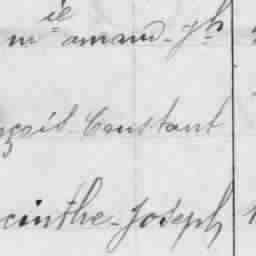 mie amand-jh
nçois-Constant
cinthe-Joseph